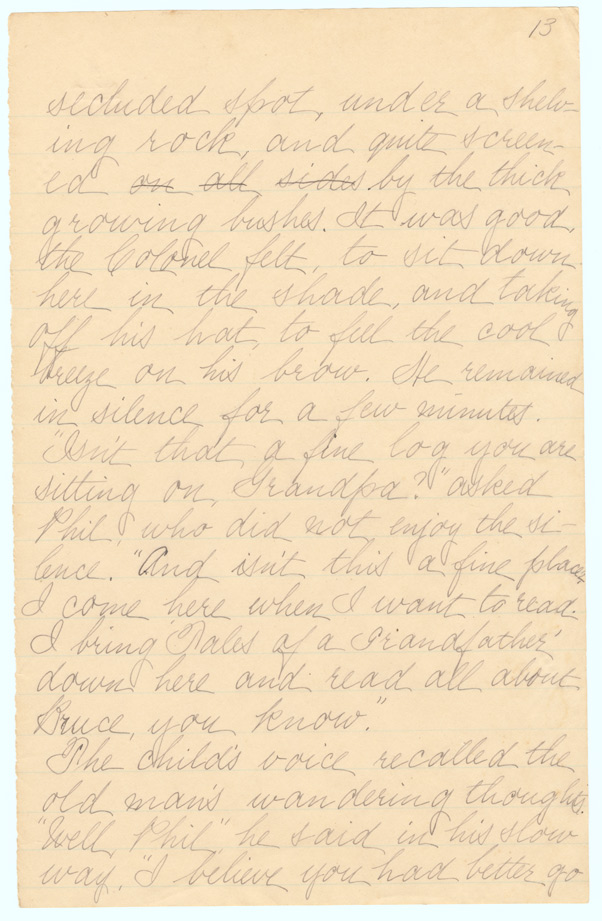 13
secluded spot, under a shelv-
ing rock, and quite screen-
ed on all sides by the thick
growing bushes. It was good,
the Colonel felt, to sit down
here in the shade, and taking
off his hat, to feel the cool
breeze on his brow. He remained
in silence for a few minutes.
"Isn't that a fine log you are
sitting on, Grandpa?" asked
Phil, who did not enjoy the si-
lence. "And isn't this a fine place,
I come here when I want to read.
I bring 'Tales of a Grandfather'
down here and read all about
Bruce, you know."
The child's voice recalled the
old man's wandering thoughts.
"Well, Phil", he said in his slow
way, "I believe you had better go